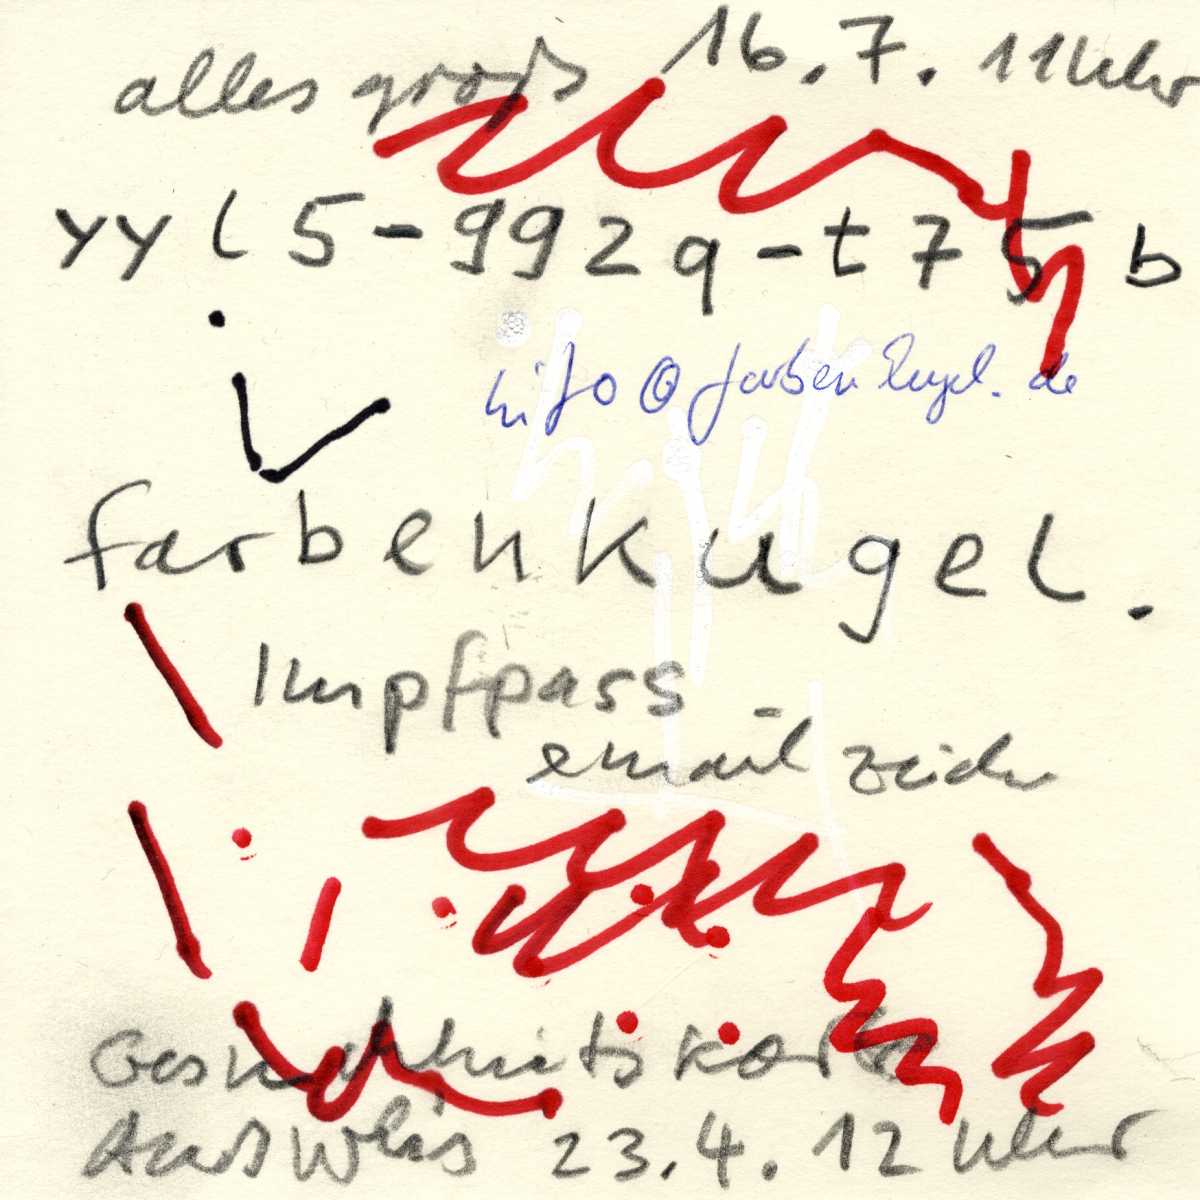 alles groß 16.7. 11 Uhr
yyl5-992q-t75b
info@farbenkugel.de
farbenkugel.
Impfpass
email zeichen
Gesundheitskarte
Ausweis 23.4. 12 Uhr